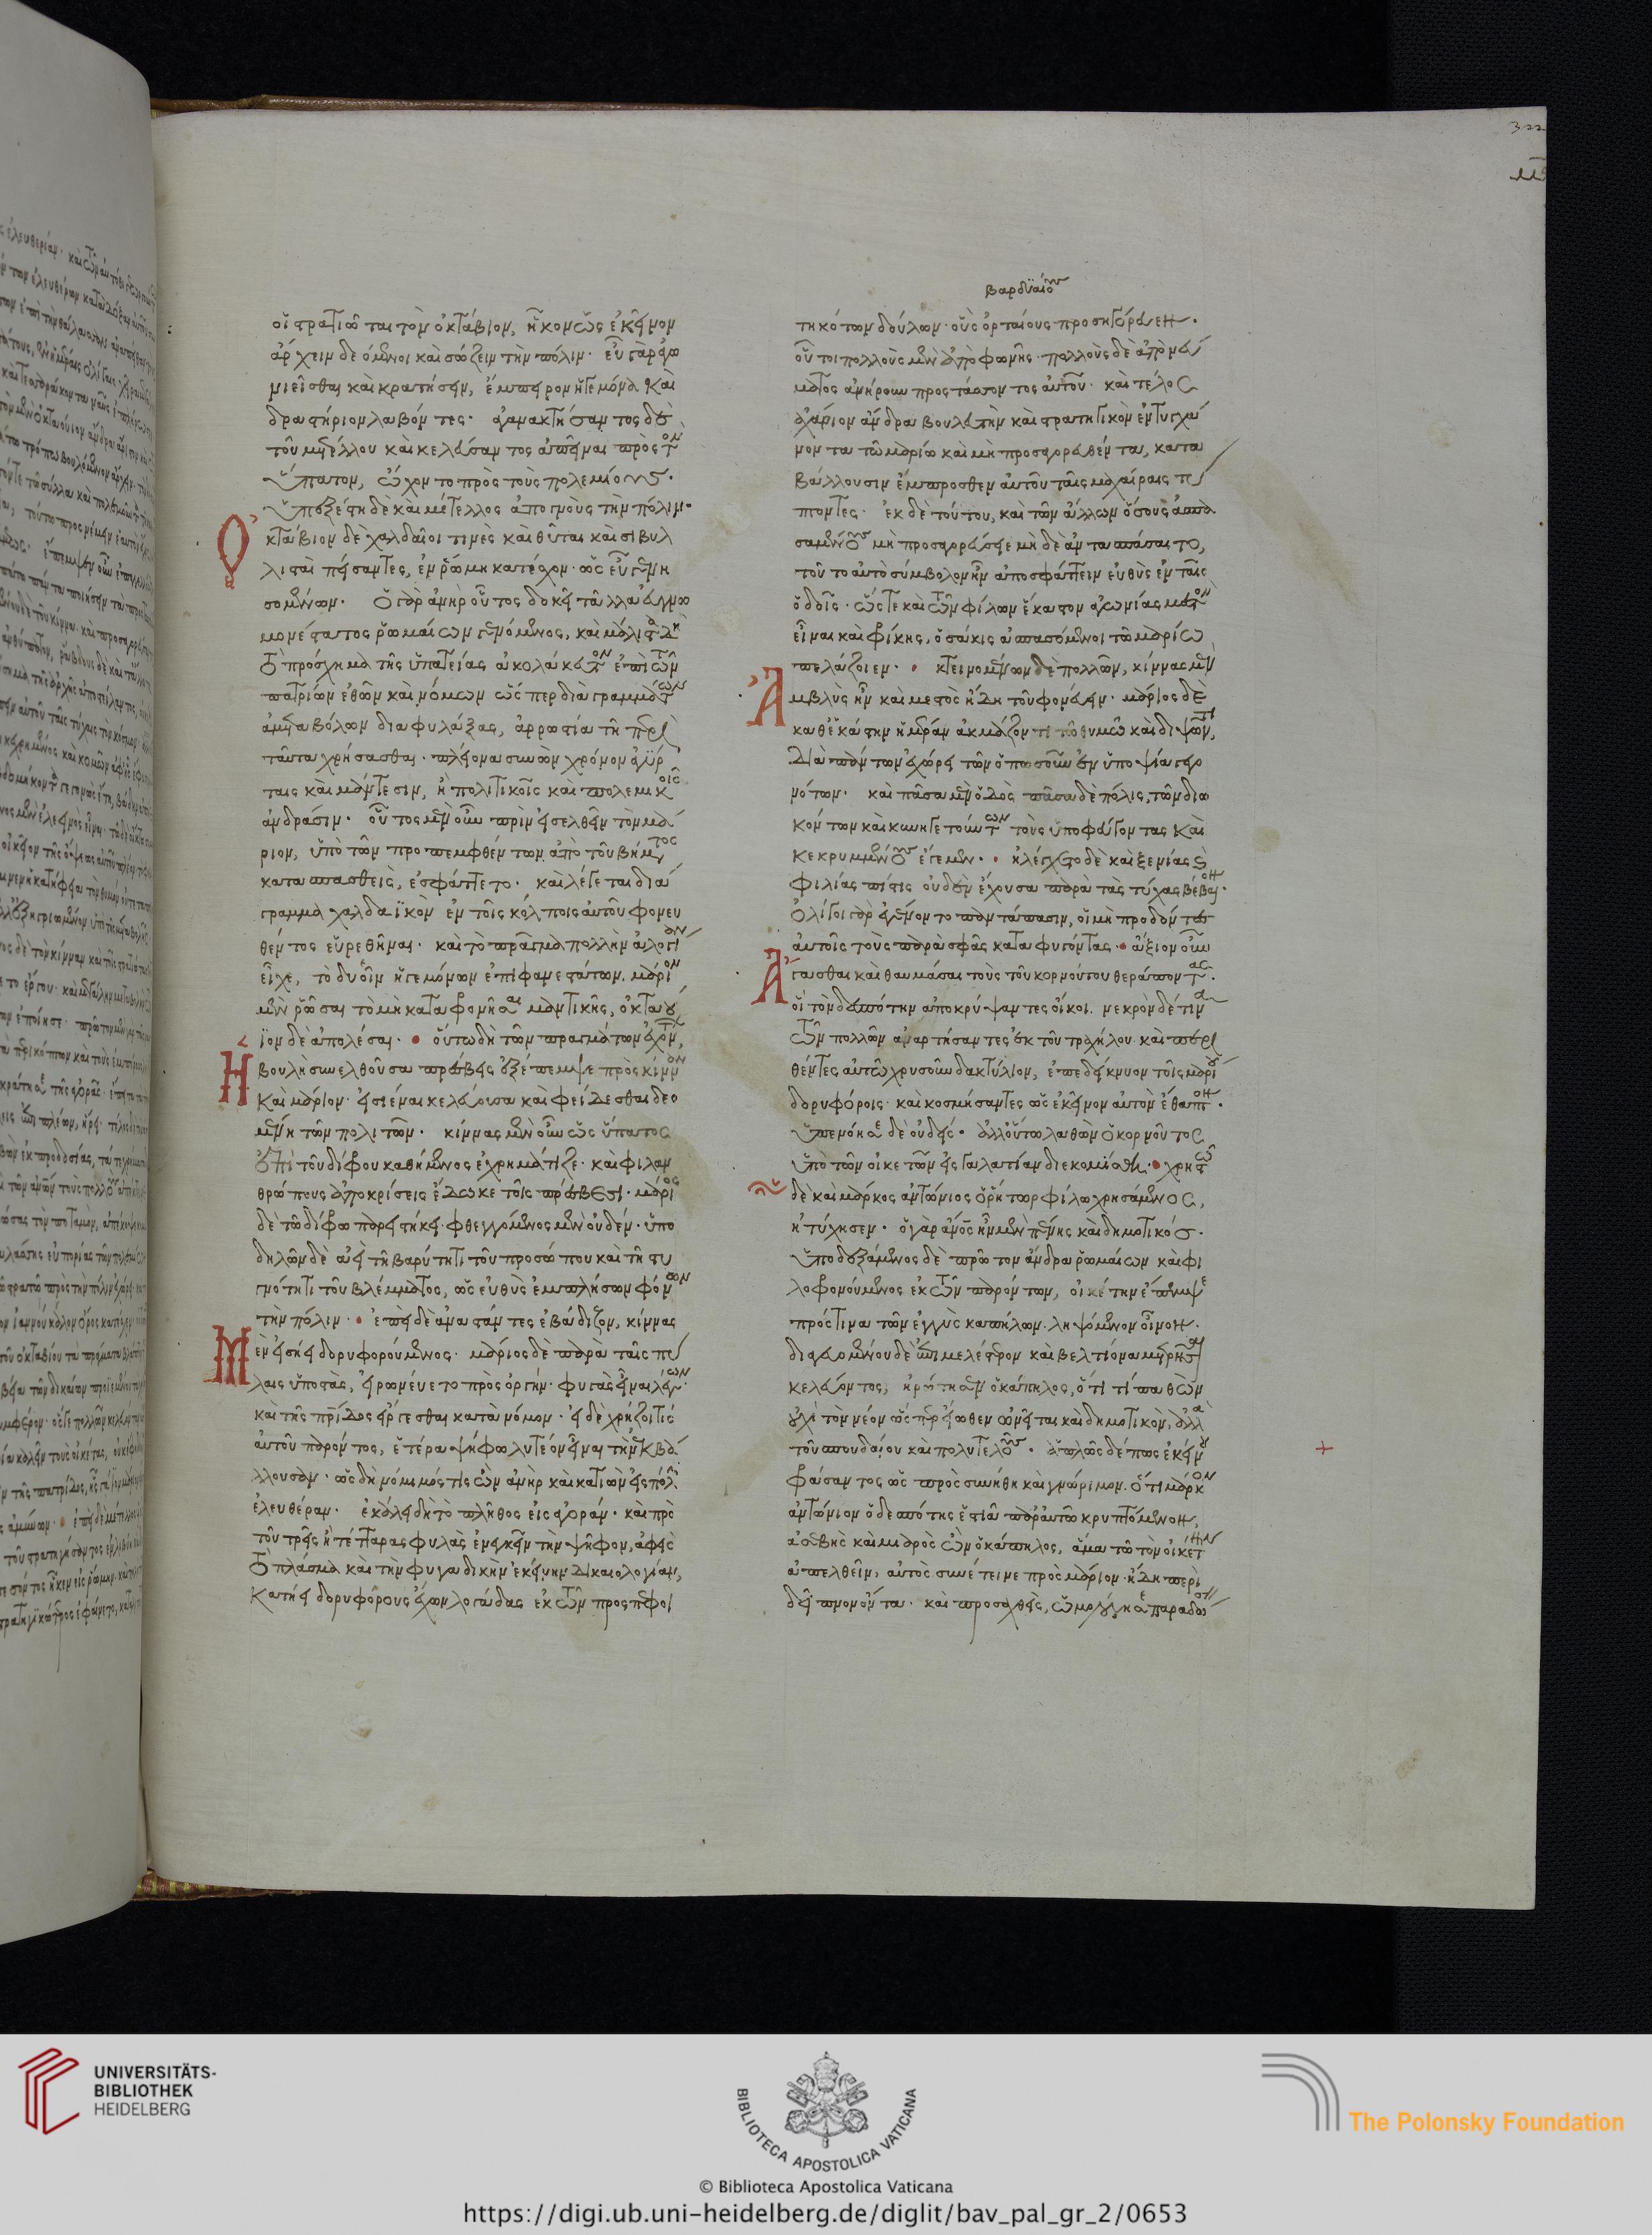 οἱ στρατιῶται τὸν ὀκτάβιον, ἧκον ὡς ἐκεῖνον
ἄρχειν δεόμενοι καὶ σώζειν τὴν πόλιν· εὖ γὰρ ἀγω
νιεῖσθαι καὶ κρατήσειν, ἔμπειρον ἡγεμόνα καὶ
δραστήριον λαβόντες· ἀγανακτήσαντος δὲ
τοῦ μετέλλου καὶ κελεύσαντος ἀπιέναι πρὸς τὸν
ὕπατον, ᾤχοντο πρὸς τοὺς πολεμίους·
ὑπεξέστη δὲ καὶ μέτελλος ἀπογνοὺς τὴν πόλιν·
Ὀκτάβιον δὲ χαλδαῖοι τινὲς καὶ θῦται καὶ σιβυλ
λισταὶ πείσαντες, ἐν ῥώμη κατέσχον· ὡς εὖ γενη
σομένων· ὁ γὰρ ἀνὴρ οὗτος δοκεῖ τἄλλα εὐγνω
μονέστατος ῥωμαίων γενόμενος, καὶ μάλιστα δὴ
τὸ πρόσχημα τῆς ὑπατείας ἀκολάκευτον ἐπὶ τῶν
πατρίων ἐθῶν καὶ νόμων ὥσπερ διαγραμμάτων
ἀμεταβόλων διαφυλάξας, ἀρρωστία τῆ περὶ
ταῦτα χρήσασθαι· πλείονα συνὼν χρόνον ἀγύρ
ταις καὶ μάντεσιν, ἢ πολιτικοῖς καὶ πολεμικοῖς
ἀνδράσιν· οὗτος μὲν οὖν πρὶν εἰσελθεῖν τὸν μά
ριον, ὑπὸ τῶν προπεμφθέντων ἀπὸ τοῦ βήματος
κατασπασθεὶς, ἐσφάττετο· καὶ λέγεται διά
γραμμα χαλδαϊκὸν ἐν τοῖς κόλποις αὐτοῦ φονευ
θέντος εὑρεθῆναι· καὶ τὸ πρᾶγμα πολλὴν ἀλογίαν
εἶχε, τὸ δυεῖν ἡγεμόνων ἐπιφανεστάτων, μάριον
μὲν ῥῶσαι τὸ μὴ καταφρονῆσαι μαντικῆς, ὀκταού
ϊον δὲ ἀπολέσαι· οὕτω δὴ τῶν πραγμάτων ἐχόντων,
Ἡ βουλὴ συνελθοῦσα πρέσβεις ἐξέπεμψε πρὸς κίνναν
καὶ μάριον· εἰσιέναι κελεύουσα καὶ φείδεσθαι δεο
μένη τῶν πολιτῶν· κίννας μὲν οὖν ὡς ὕπατος
ἐπὶ τοῦ δίφρου καθήμενος ἐχρημάτιζε· καὶ φιλαν
θρώπους ἀποκρίσεις ἔδωκε τοῖς πρέσβεσι· μάριος
δὲ τῶ δίφρω παρειστήκει· φθεγγόμενος μὲν οὐδὲν· ὑπο
δηλῶν δὲ ἀεὶ τῆ βαρύτητι τοῦ προσώπου καὶ τῆ στυ
γνότητι τοῦ βλέμματος, ὡς εὐθὺς ἐμπλήσων φόνων
τὴν πόλιν· ἐπεὶ δὲ ἀναστάντες ἐβάδιζον, κίννας
Μὲν εἰσήει δορυφορούμενος· μάριος δὲ παρὰ ταῖς πύ
λαις ὑποστὰς, εἰρωνεύετο πρὸς ὀργήν· φυγὰς εἶναι λέγων·
καὶ τῆς πατρίδος εἴργεσθαι κατὰ νόμον· εἰ δὲ χρήζοι τις
αὐτοῦ παρόντος, ἑτέρα ψήφω λυτέον εἶναι τὴν ἐκβά
λλουσαν· ὡς δὴ νόμιμός τις ὢν ἀνὴρ καὶ κατιὼν εἰς πόλιν
ἐλευθέραν· ἐκάλει δὴ τὸ πλῆθος εἰς ἀγοράν· καὶ πρὸ
τοῦ τρεῖς ἢ τέτταρας φυλὰς ἐνεγκεῖν τὴν ψῆφον, ἀφεὶς
τὸ πλάσμα καὶ τὴν φυγαδικὴν ἐκείνην δικαιολογίαν,
κατήει δορυφόρους ἔχων λογάδας ἐκ τῶν προσπεφοι
βαρδϋαίους
τηκότων δούλων· οὓς ὀρταίους προσηγόρευεν·
οὗτοι πολλοὺς μὲν ἀπὸ φωνῆς· πολλοὺς δὲ ἀπὸ νεύ
ματος ἀνήρουν προστάσσοντος αὐτοῦ· καὶ τέλος
ἀγχάριον ἄνδρα βουλευτὴν καὶ στρατηγικὸν ἐντυγχά
νοντα τῶ μαρίω καὶ μὴ προσαγορευθέντα, κατα
βάλλουσιν ἔμπροσθεν αὐτοῦ ταῖς μαχαίραις τύ
πτοντες· ἐκ δὲ τούτου, καὶ τῶν ἄλλων ὅσους ἀσπα
σαμένους μὴ προσαγορεύσειε μὴ δὲ ἀντασπάσαιτο,
τοῦτο αὐτὸ σύμβολον ἦν ἀποσφάττειν εὐθὺς ἐν ταῖς
ὁδοῖς· ὥστε καὶ τῶν φίλων ἕκαστον ἀγωνίας μεστὸν
εἶναι καὶ φρίκης, ὁσάκις ἀσπασόμενοι τῶ μαρίω
πελάζοιεν· κτεινομένων δὲ πολλῶν, κίννας μὲν
Ἀμβλὺς ἦν καὶ μεστὸς ἤδη τοῦ φονεύειν· μάριος δὲ
καθ' ἑκάστην ἡμέραν ἀκμάζοντι τῶ θυμῶ καὶ διψῶντι,
διὰ πάντων ἐχώρει τῶν ὁπωσοῦν ἐν ὑποψία γεγο
νότων· καὶ πᾶσα μὲν ὁδὸς πᾶσα δὲ πόλις, τῶν διω
κόντων καὶ κυνηγετούντων τοὺς ὑποφεύγοντας καὶ
κεκρυμμένους ἔγεμεν· ἠλέγχετο δὲ καὶ ξενίας καὶ
φιλίας πίστις οὐδὲν ἔχουσα παρὰ τὰς τύχας βέβαιον·
ὀλίγοι γὰρ ἐγένοντο παντάπασιν, οἳ μὴ προδόντες
αὐτοῖς τοὺς παρὰ σφᾶς καταφυγόντας· ἄξιον οὖν
Ἄγασθαι καὶ θαυμάσαι τοὺς τοῦ κορνούτου θεράποντας·
οἳ τὸν δεσπότην ἀποκρύψαντες οἴκοι. νεκρὸν δέ τινα
τῶν πολλῶν ἀναρτήσαντες ἐκ τοῦ τραχήλου· καὶ περι
θέντες αὐτῶ χρυσοῦν δακτύλιον, ἐπεδείκνυον τοῖς μαρίου
δορυφόροις· καὶ κοσμήσαντες ὡς ἐκεῖνον αὐτὸν ἔθαπτον·
ὑπενόησε δὲ οὐδείς· ἀλλ' οὕτω λαθὼν ὁ κορνοῦτος
ὑπὸ τῶν οἰκετῶν εἰς γαλατίαν διεκομίσθη· χρηστῶ
δὲ καὶ μάρκος ἀντώνιος ὁ ῥήτωρ φίλω χρησάμενος,
ἠτύχησεν· ὁ γὰρ ἀνὴρ ἦν μὲν πένης καὶ δημοτικός·
ὑποδεξάμενος δὲ πρῶτον ἄνδρα ῥωμαίων καὶ φι
λοφρονούμενος ἐκ τῶν παρόντων, οἰκέτην ἔπεμψε
πρός τινα τῶν ἐγγὺς καπήλων· ληψόμενον οἶνον·
διαγευομένου δὲ ἐπιμελέστερον καὶ βελτίονα μετρῆσαι
κελεύοντος, ἠρώτησεν ὁ κάπηλος, ὅ τι τί παθὼν
οὐχὶ τὸν νέον ὥσπερ εἴωθεν ὠνεῖται καὶ δημοτικὸν, ἀλλὰ
τοῦ σπουδαίου καὶ πολυτελοῦς· ἁπλῶς δέ πως ἐκείνου
φράσαντος ὡς πρὸς συνήθη καὶ γνώριμον. ὅτι μάρκον
ἀντώνιον ὁ δεσπότης ἑστιᾶ παρ' αὐτῶ κρυπτόμενον,
ἀσεβὴς καὶ μιαρὸς ὢν ὁ κάπηλος, ἅμα τῶ τὸν οἰκέτην
ἀπελθεῖν, αὐτὸς συνέτεινε πρὸς μάριον· ἤδη περὶ
δεῖπνον ὄντα· καὶ προσαχθεὶς, ὡμολόγησε παραδώσειν